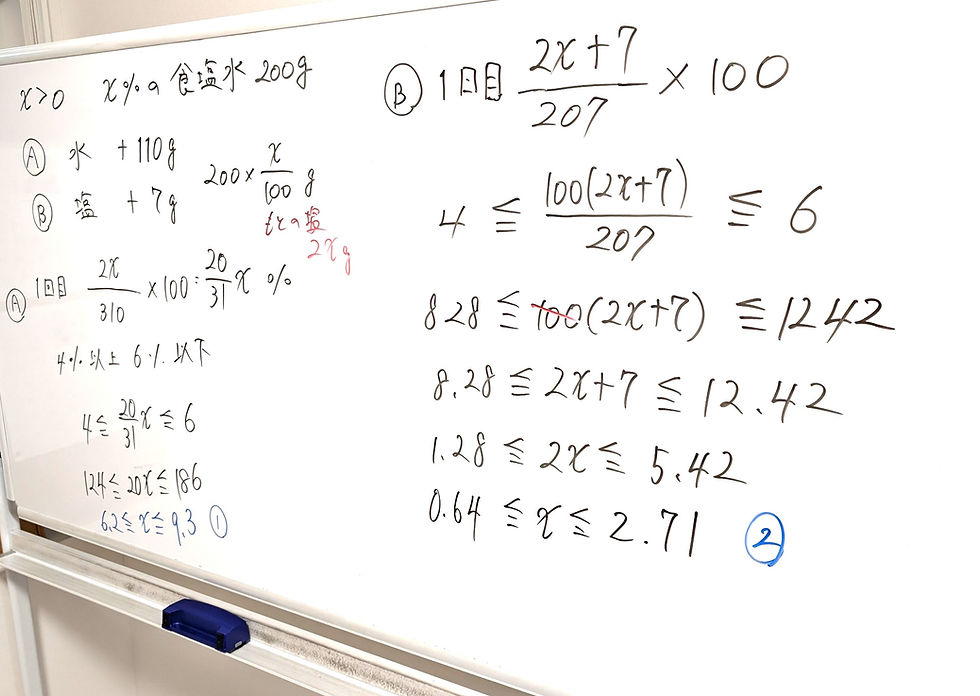 x>0 x%の食塩水200g
Ⓐ 水 +110g
Ⓑ 塩 +7g
200×x/100 g
もとの塩
2x g
Ⓐ 1回目 2x/310 ×100=20/31 x %
4%以上 6%以下
4≦20/31 x≦6
124≦20x≦186
6.2≦x≦9.3 ①
Ⓑ 1回目 2x+7/207 ×100
4≦100(2x+7)/207≦6
828≦100(2x+7)≦1242
8.28≦2x+7≦12.42
1.28≦2x≦5.42
0.64≦x≦2.71 ②